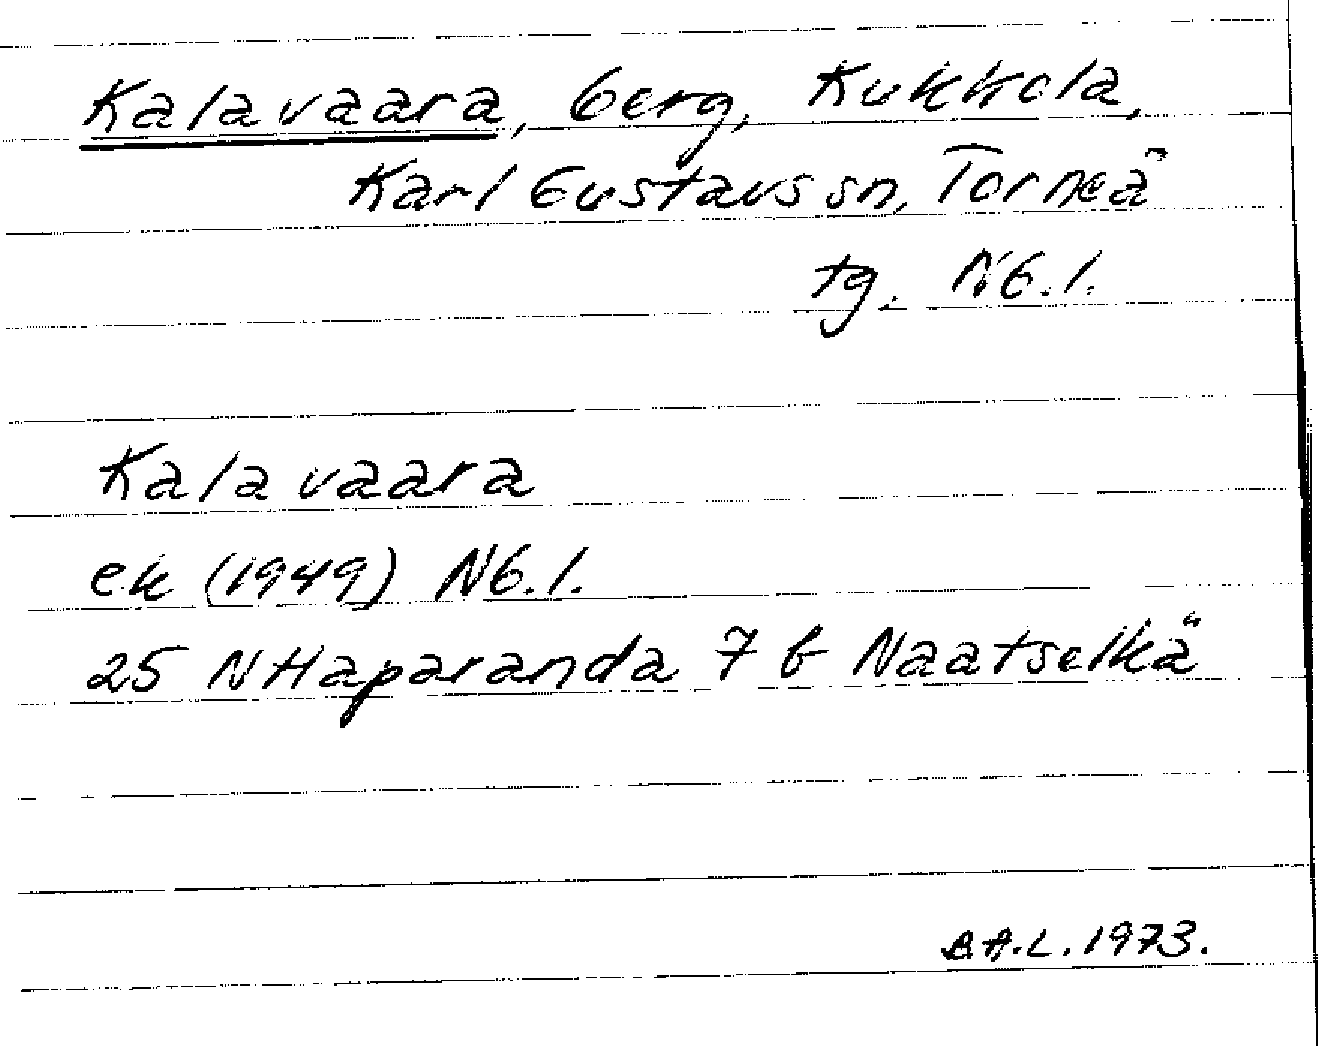 Kalavaara, berg, Kukkola,
Karl Gustavs sn, Torneå
tg. Nb.l.
Kalavaara
ek (1949) Nb.l.
25 NHaparanda 7 b Naatselkä
B.A.L. 1973.